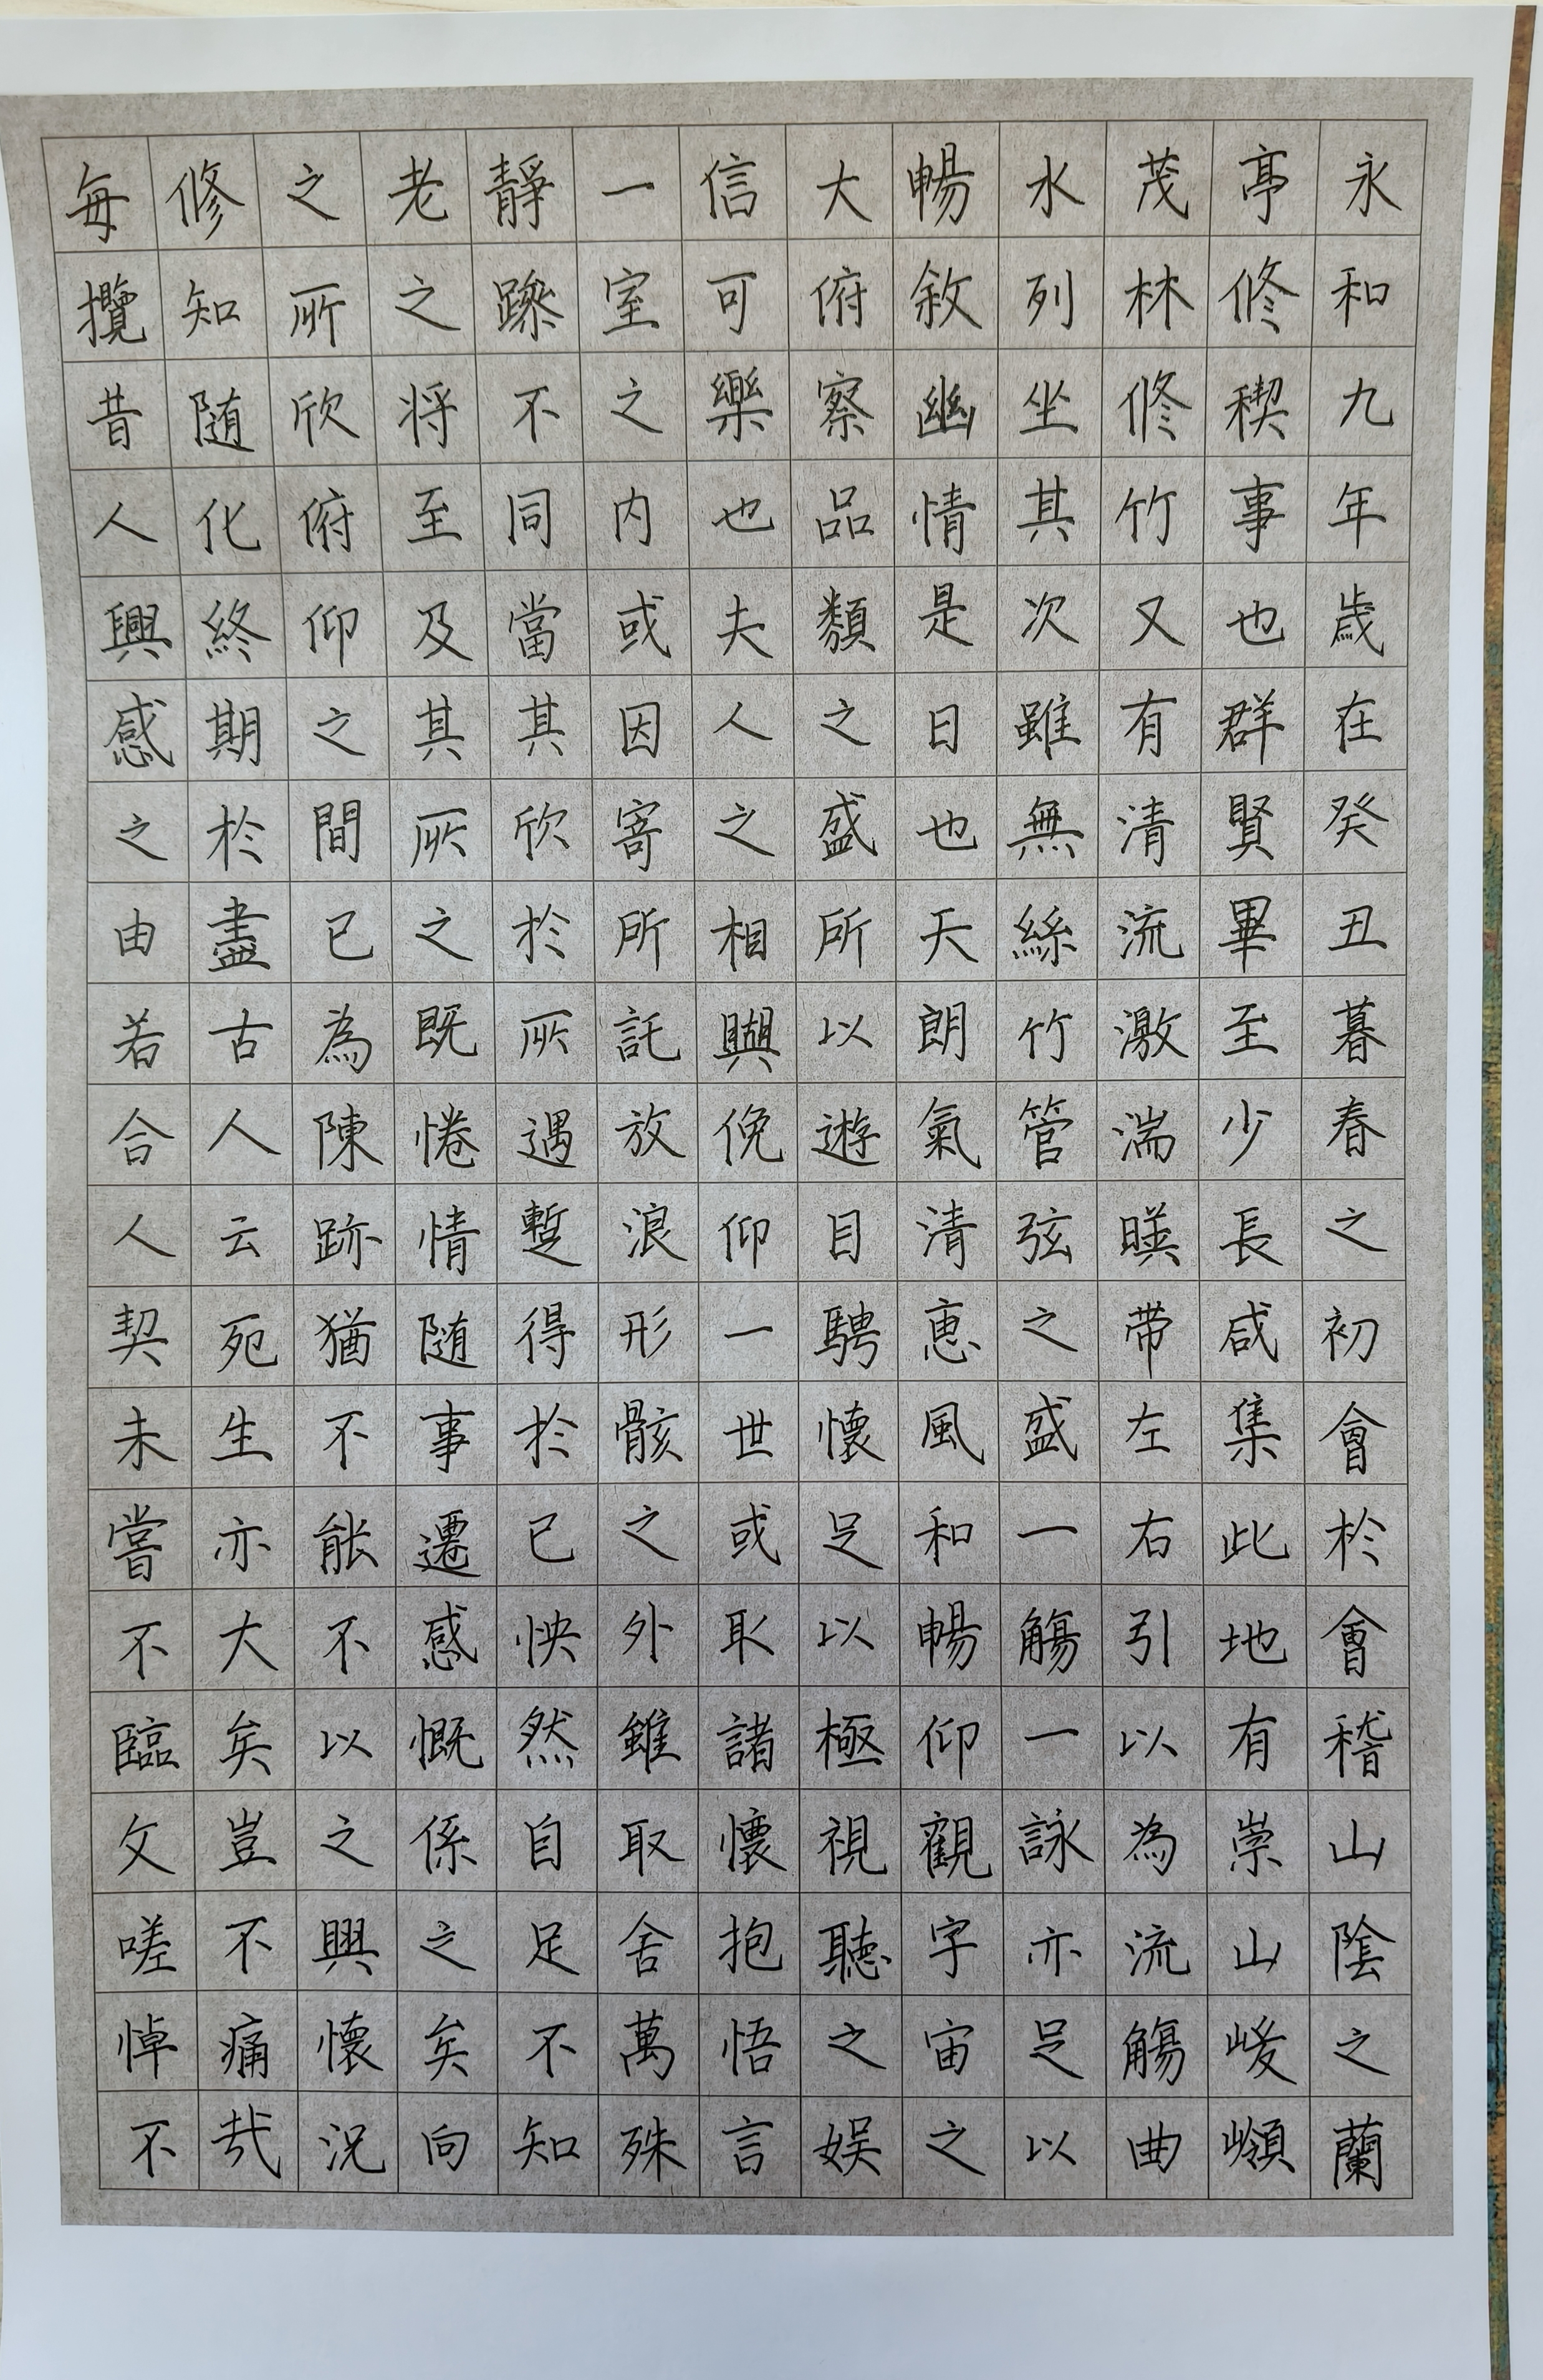 永和九年歲在癸丑暮春之初會於會稽山陰之蘭
亭修稧事也群賢畢至少長咸集此地有崇山峻嶺
茂林修竹又有清流激湍暎帶左右引以為流觴曲
水列坐其次雖無絲竹管弦之盛一觴一詠亦足以
暢敘幽情是日也天朗氣清惠風和暢仰觀字宙之
大俯察品類之盛所以遊目騁懷足以極視聽之娛
信可樂也夫人之相與俛仰一世或取諸懷抱悟言
一室之内或因寄所託放浪形骸之外雖取舍萬殊
靜躁不同當其欣於所遇蹔得於已怏然自足不知
老之将至及其所之既惓情随事遷感慨係之矣向
之所欣俯仰之間已為陳跡猶不能不以之興懷況
修知随化終期於盡古人云死生亦大矣豈不痛哉
每攬昔人興感之由若合人契未嘗不臨文嗟悼不